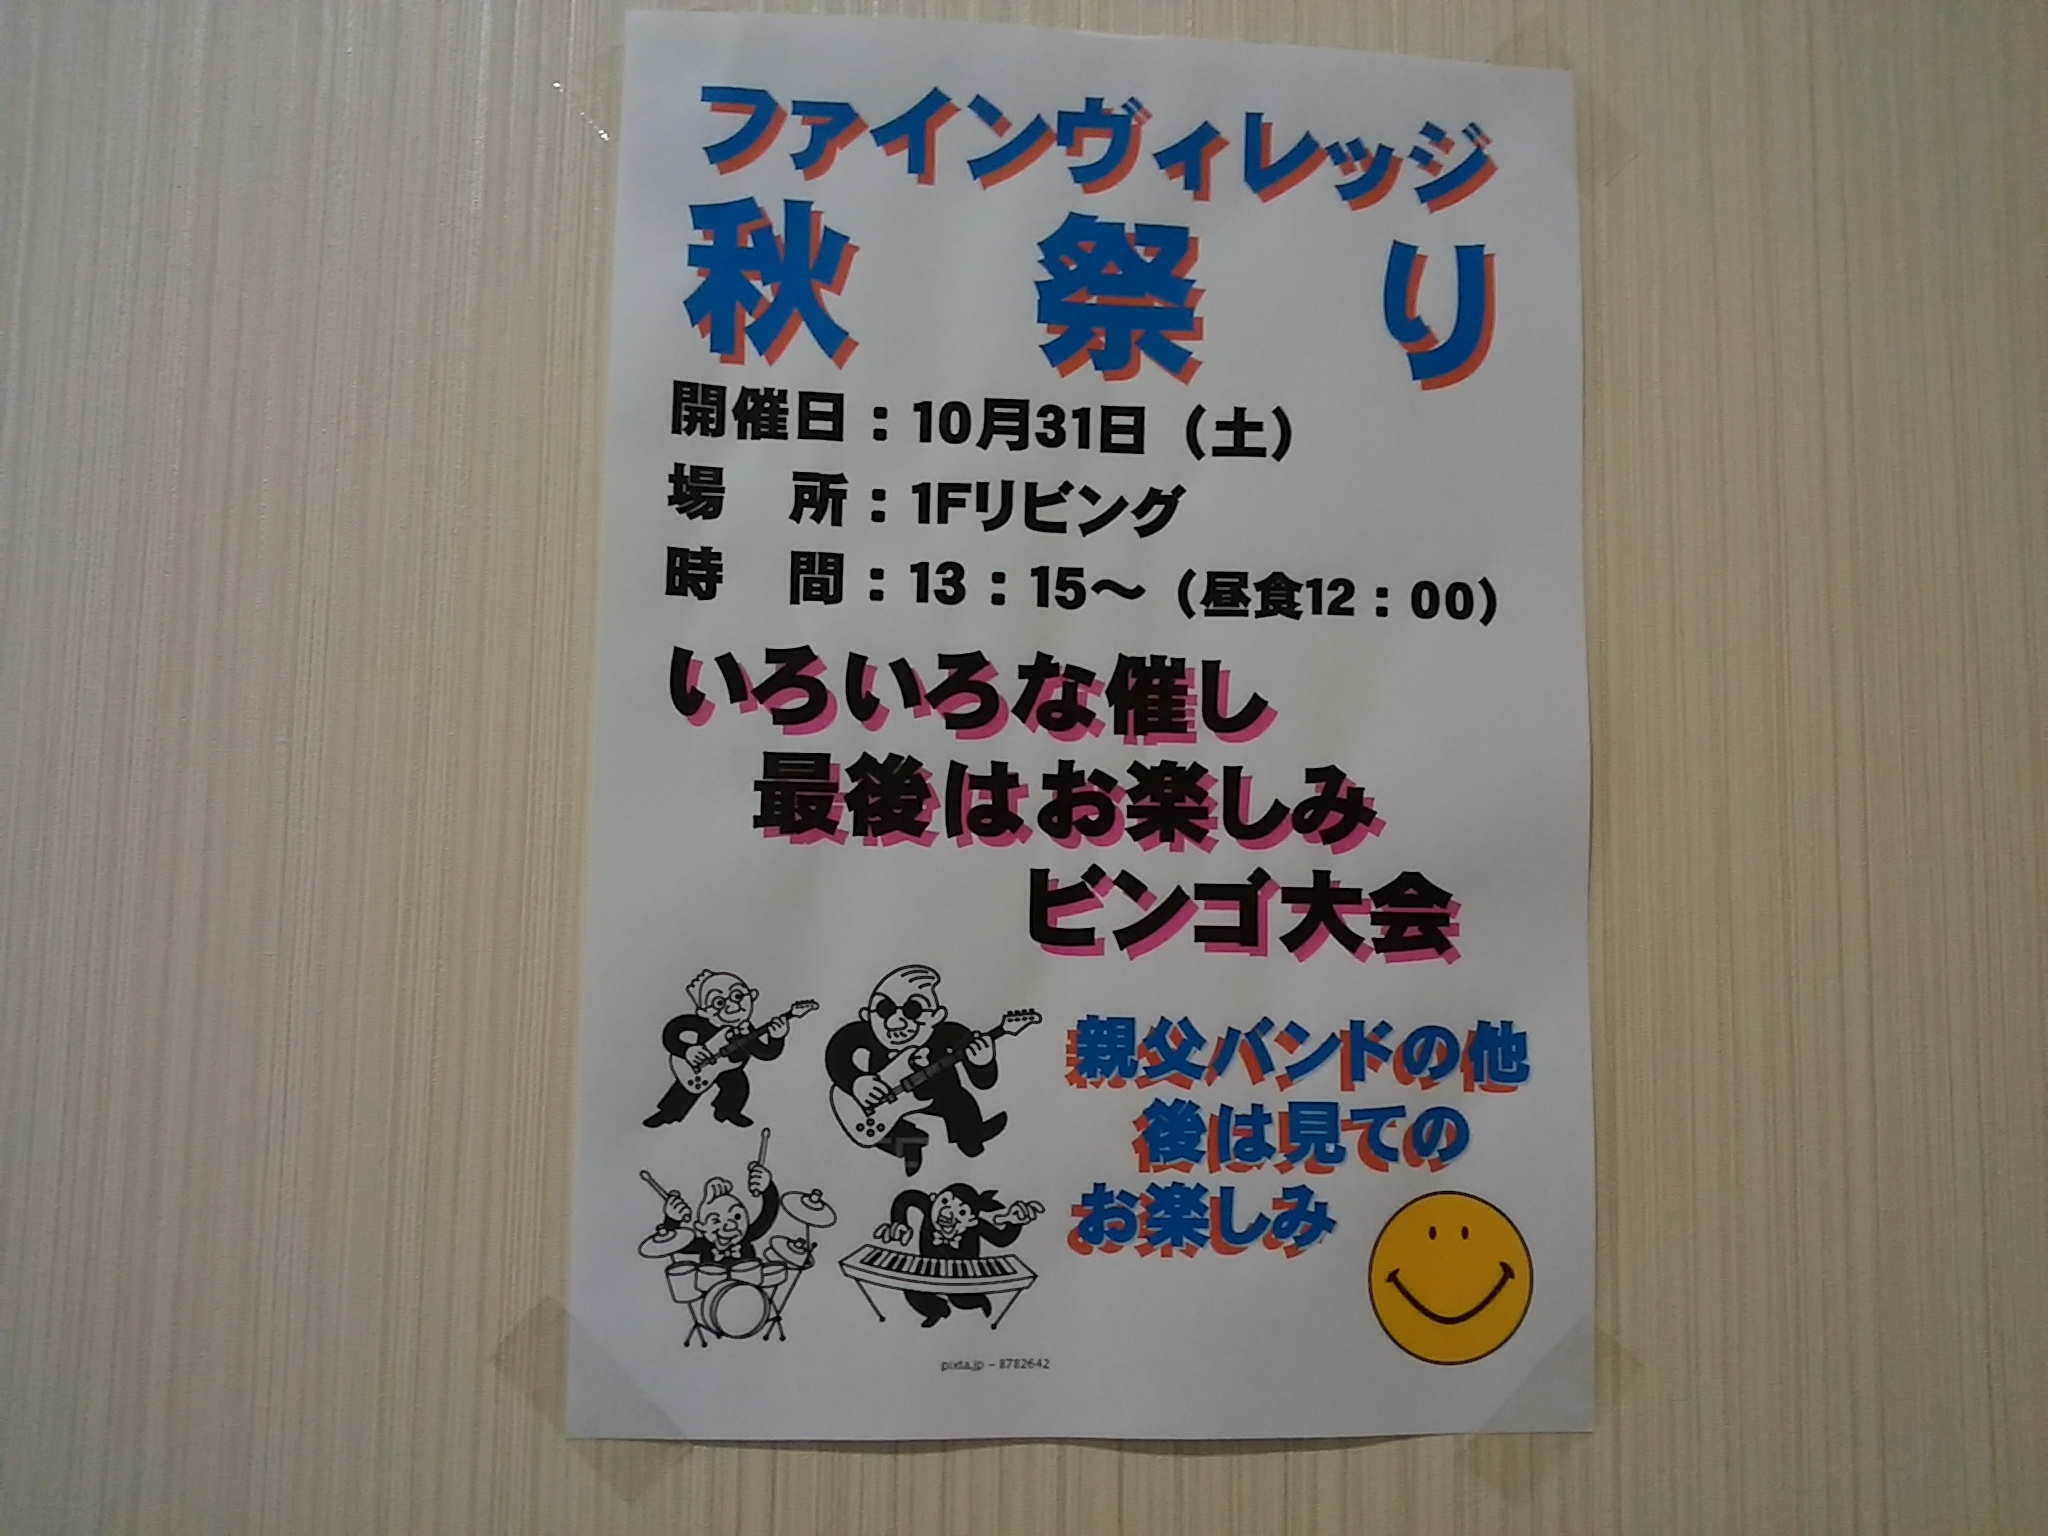 ファインヴィレッジ
秋 祭 り
開催日：10月31日（土）
場　所：1Fリビング
時　間：13：15～（昼食12：00）
いろいろな催し
最後はお楽しみ
ビンゴ大会
親父バンドの他
後は見ての
お楽しみ
pixta.jp - 8782642